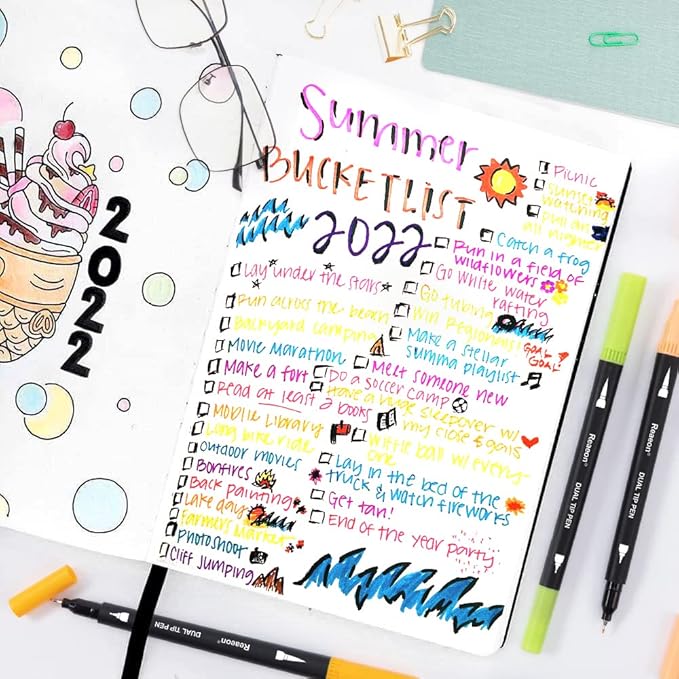 Summer
BUCKETLIST
2022
Picnic
Sunset
watching
pull an
all nighter
Catch a frog
Run in a field of
wildflowers
Go White water
rafting
Go tubing
Win Regionals!
GOAL
GOAL!
Make a stellar
summa playlist
Lay under the stars
Run across the beach
Backyard camping
Movie Marathon
Meet someone new
Make a fort
Do a soccer camp
Read at least 2 books
Have a huge sleepover w/
my close 6 gals
Mobile Library
Wiffle ball w/ every
one
Long bike ride
Outdoor movies
Lay in the bed of the
truck & watch fireworks
Bonfires
Back painting
Get tan!
Lake day
End of the year party
Farmers Market
Photoshoot
Cliff Jumping
2022
Reaeon® DUAL TIP PEN
Reaeon® DUAL TIP PEN
Reaeon® DUAL TIP PEN